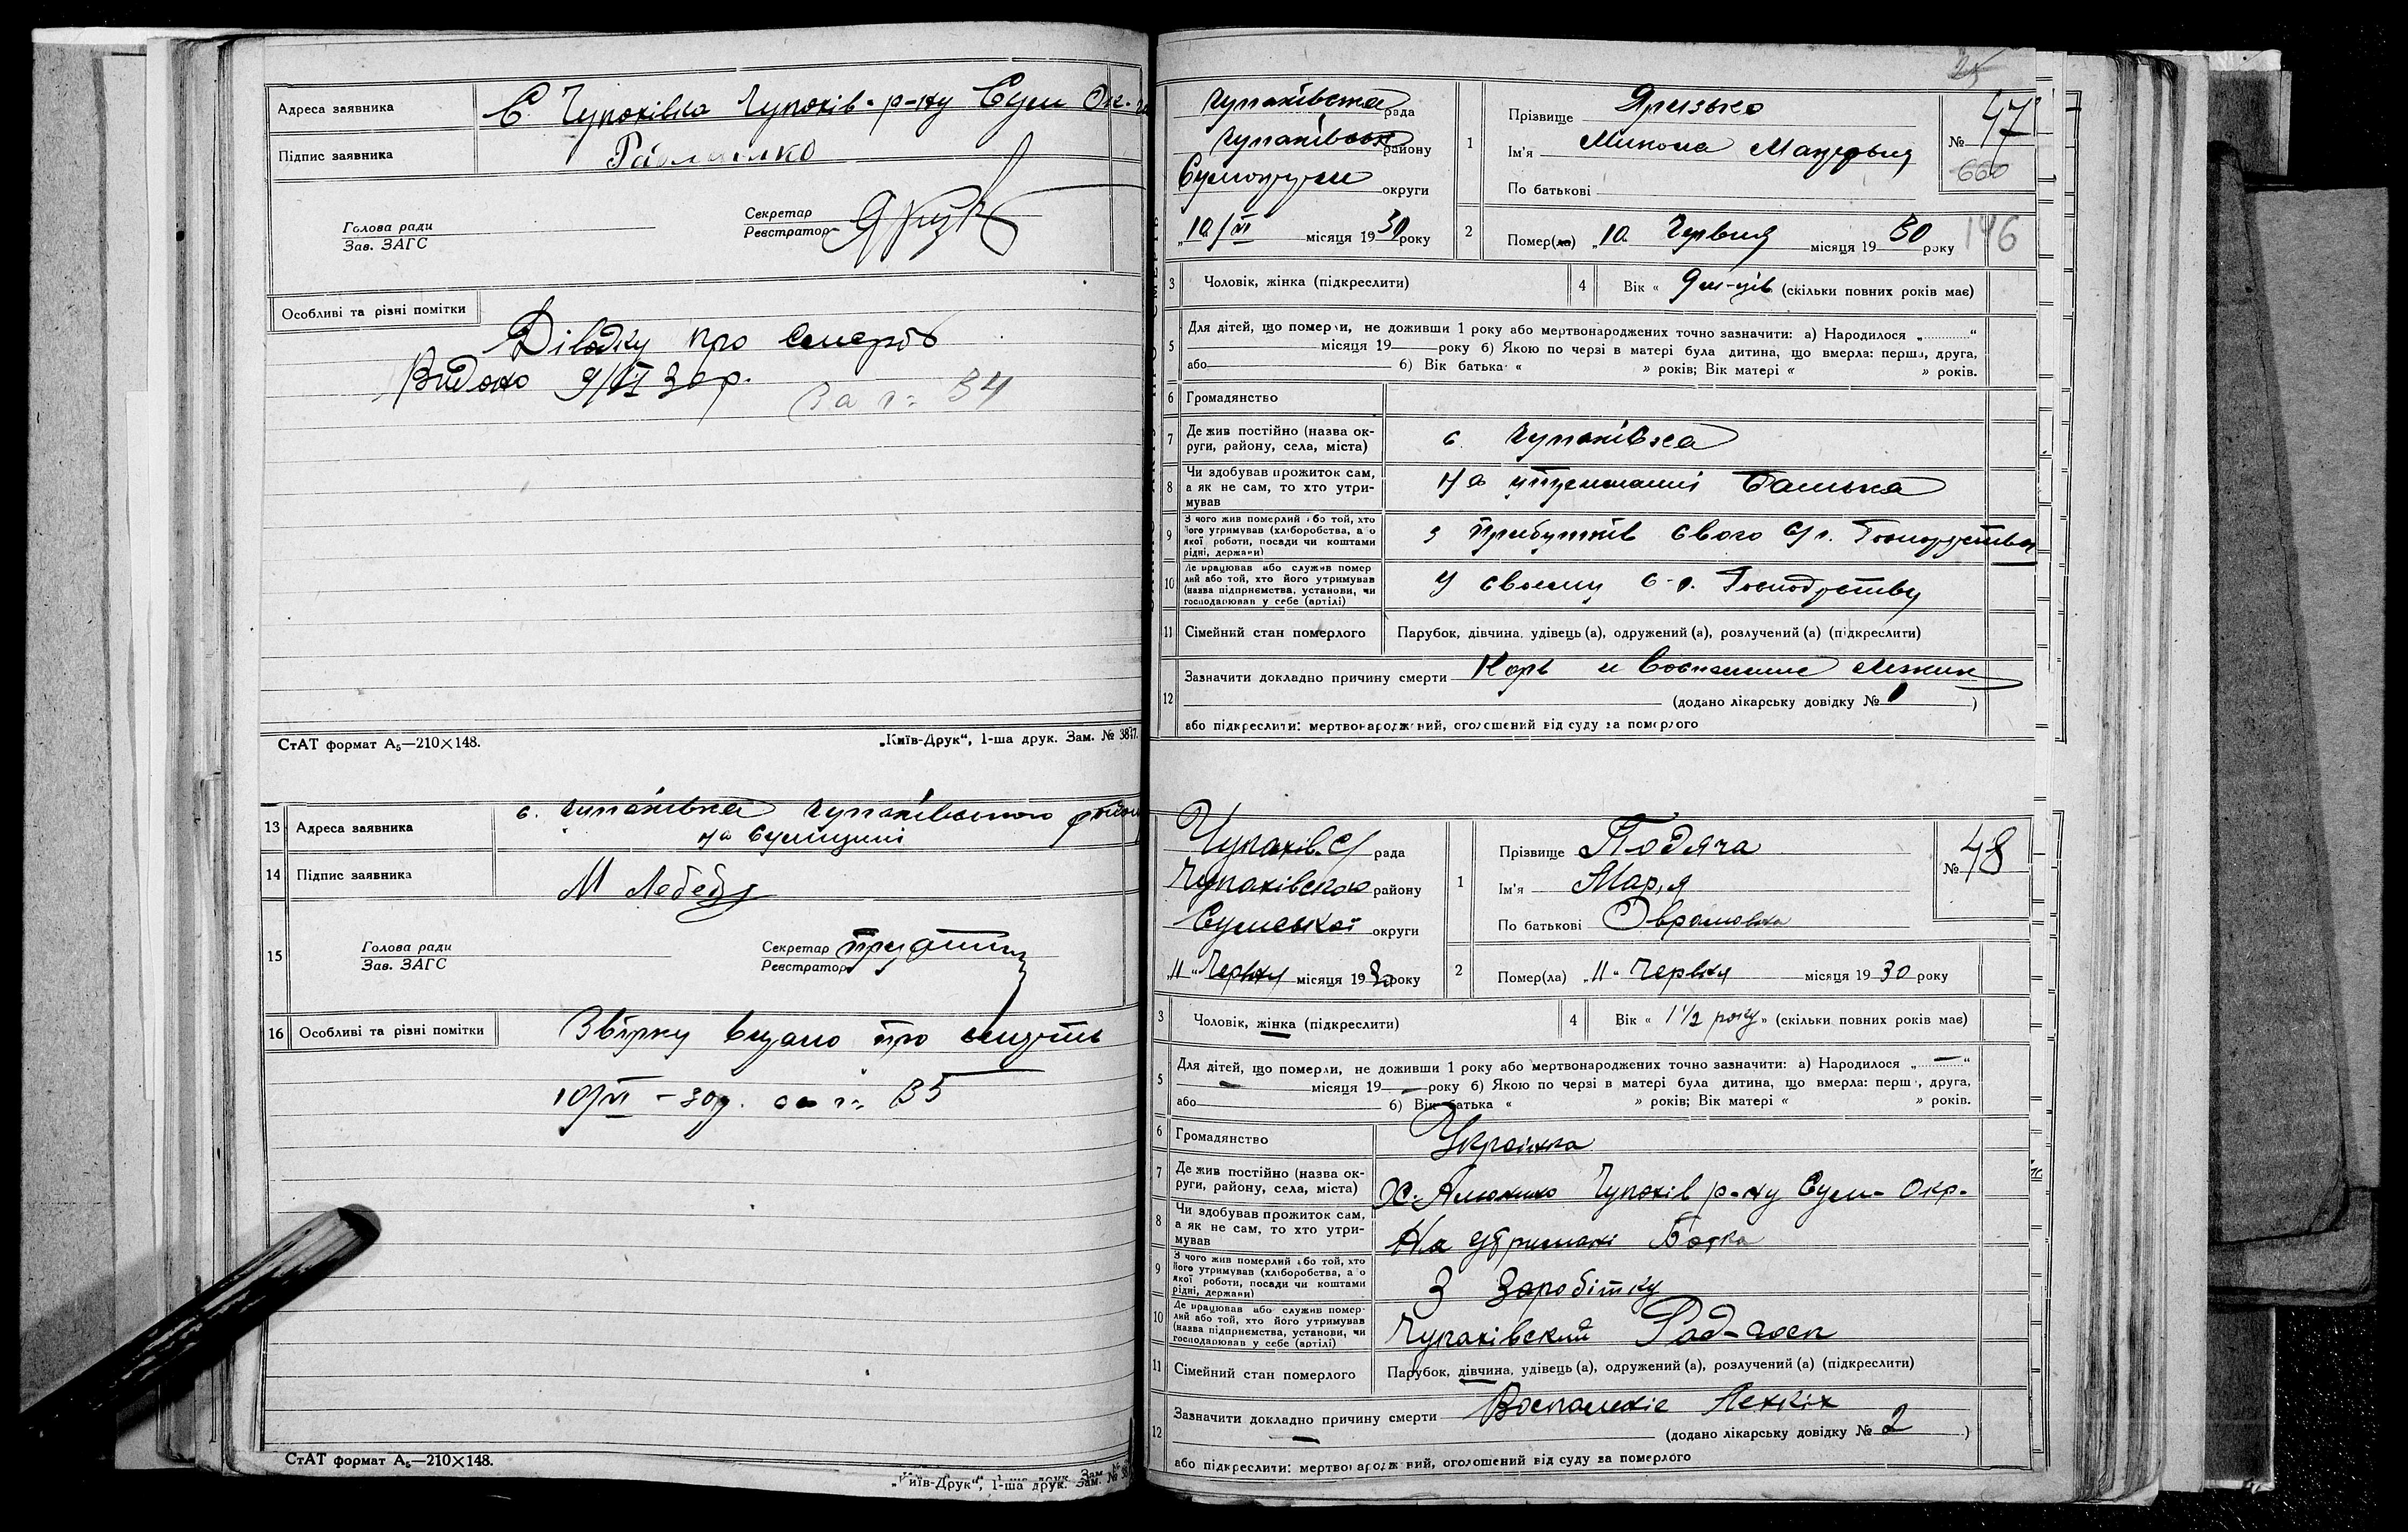 Адреса заявника С. Чупахівка Чупахів. р-ну Сум Ок-
Підпис заявника
Голова ради
Зав. ЗАГС
Секретар
Реєстратор
Особливі та різні помітки
Довідку про смерть
Видано 9/VI 30 р.
За № 34
СтАТ формат А₅—210×148.
„Київ-Друк“, 1-ша друк. Зам. № 3877.
13 Адреса заявника с. Чупахівка Чупахівського району
на Сумщині
14 Підпис заявника М Лебедь
15 Голова ради
Зав. ЗАГС
Секретар
Реєстратор
16 Особливі та різні помітки
Звірку видано про смерть
10/VI – 30 р. за № 35
СтАТ формат А₅—210×148.
„Київ-Друк“, 1-ша друк. Зам. №
25
Чупахівська рада
Чупахівськ району
Сумокруги округи
„10“ VI місяця 1930 року
1 Прізвище
Ім'я Микола
По батькові
№ 47
660
2 Помер(ла) „10 Червня місяця 1930 року
146
3 Чоловік, жінка (підкреслити)
4 Вік « 9 м-ців (скільки повних років має)
5 Для дітей, що померли, не доживши 1 року або мертвонароджених точно зазначити: а) Народилося „ “
місяця 19 року б) Якою по черзі в матері була дитина, що вмерла: перша, друга,
або б) Вік батька « » років; Вік матері « » років.
6 Громадянство
7 Де жив постійно (назва округи, району, села, міста) с. Чупахівка
8 Чи здобував прожиток сам, а як не сам, то хто утримував на утриманні батька
9 З чого жив померлий або той, хто його утримував (хліборобства, або якої роботи, посади чи коштами рідні, держави) з прибутків свого с/г. Господарства
10 Де працював або служив померлий або той, хто його утримував (назва підприємства, установи, чи господарював у себе (артілі) У своєму с-г. Господарству
11 Сімейний стан померлого Парубок, дівчина, удівець (а), одружений (а), розлучений (а) (підкреслити)
12 Зазначити докладно причину смерти Корь и Воспаление легких
(додано лікарську довідку № 1 )
або підкреслити: мертвонароджений, оголошений від суду за померлого
Чупахів. С/ рада
Чупахівського району
Сумської округи
„11“ Червня місяця 1930 року
1 Прізвище Подяча
Ім'я Марія
По батькові Оврамовна
№ 48
2 Помер(ла) „11“ Червня місяця 1930 року
3 Чоловік, жінка (підкреслити)
4 Вік « 1 1/2 року » (скільки повних років має)
5 Для дітей, що померли, не доживши 1 року або мертвонароджених точно зазначити: а) Народилося „ — “
— місяця 19 — року б) Якою по черзі в матері була дитина, що вмерла: перша, друга,
або б) Вік батька « » років; Вік матері « » років.
6 Громадянство Українка
7 Де жив постійно (назва округи, району, села, міста) Х. Чупахів р-ну Сум- Окр.
8 Чи здобував прожиток сам, а як не сам, то хто утримував На утримані Батка
9 З чого жив померлий або той, хто його утримував (хліборобства, або якої роботи, посади чи коштами рідні, держави) З Заробітку
10 Де працював або служив померлий або той, хто його утримував (назва підприємства, установи, чи господарював у себе (артілі) Чупахівский Рад-госп
11 Сімейний стан померлого Парубок, дівчина, удівець (а), одружений (а), розлучений (а) (підкреслити)
12 Зазначити докладно причину смерти Воспаленіе Легкіх
— (додано лікарську довідку № 2 )
або підкреслити: мертвонароджений, оголошений від суду за померлого